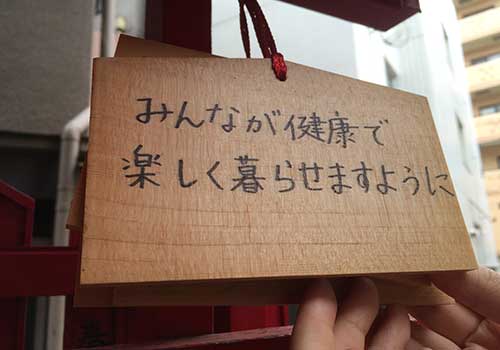 みんなが健康で
楽しく暮らせますように